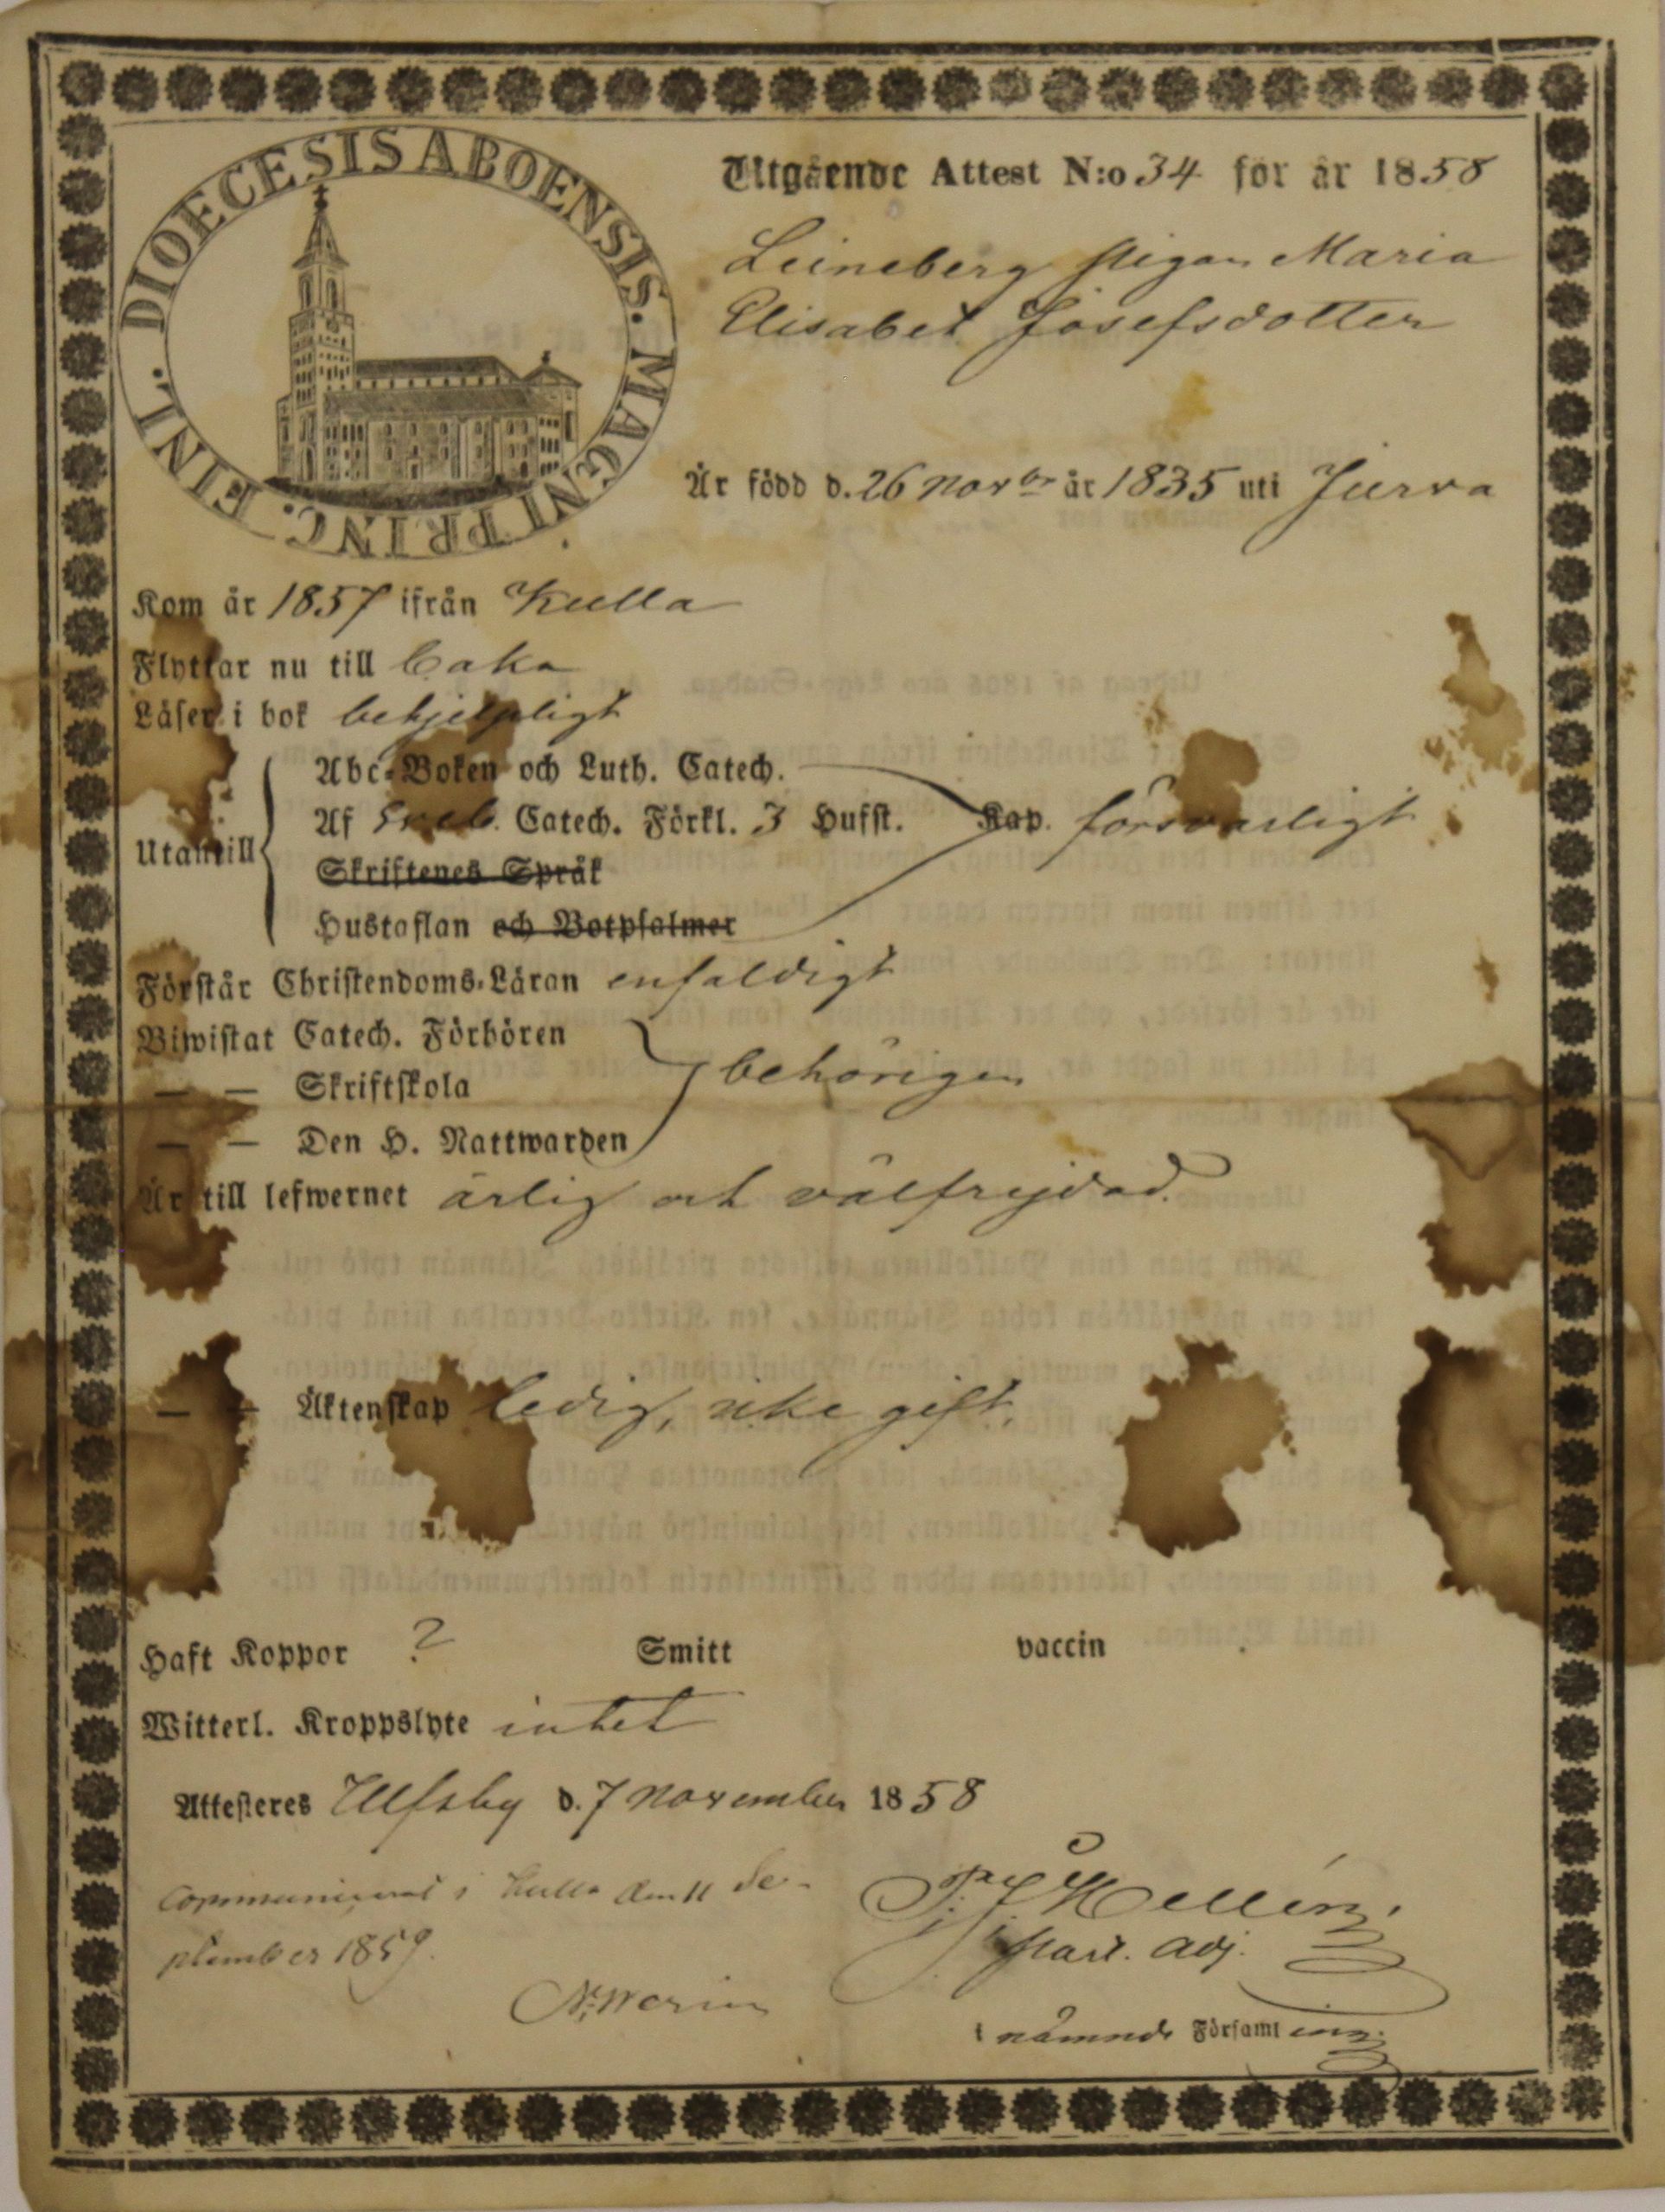 DIOECESIS ABOENSIS. MAGNI PRINC. FINL.
Utgående Attest N:o 34 för år 1858
Leineberg pigan Maria
Elisabet Josefsdotter
Är född d. 26 Novbr år 1835 uti Jurva
Kom år 1857 ifrån Kulla
Flyttar nu till
Läser i bok behjelpligt
Abc-Boken och Luth. Catech.
Af Sveb. Catech. Förkl. 3 Hufst. Kap. försvarligt
Utantill
Skriftenes Språk
Hustaflan och Botpsalmer
Förstår Christendoms-Läran enfaldigt
Biwistat Catech. Förhören
— — Skriftskola behörigen
— — Den H. Nattwarden
Är till lefwernet ärlig och välfrejdad.
— — Äktenskap ledig, icke gift.
Haft Koppor ? Smitt vaccin
Witterl. Kroppslyte intet
Attesteres Ulfsby d. 7 November 1858
Communicerat i Kulla den 11 Se-
ptember 1859.
Hellén
Past. Adj.
i nämnde Församling